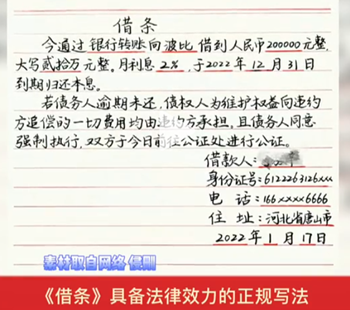 借条
今通过银行转账向波比借到人民币200000元整,
大写贰拾万元整。月利息2%,于2022年12月31日
到期归还本息。
若债务人逾期未还,债权人为维护权益向违约
方追偿的一切费用均由违约方承担,且债务人同意
强制执行,双方于今日前往公证处进行公证。
借款人:
身份证号:6122263126xxx
电话:166xxxx6666
住址:河北省唐山市
2022年1月17日
素材取自网络 侵删
《借条》具备法律效力的正规写法